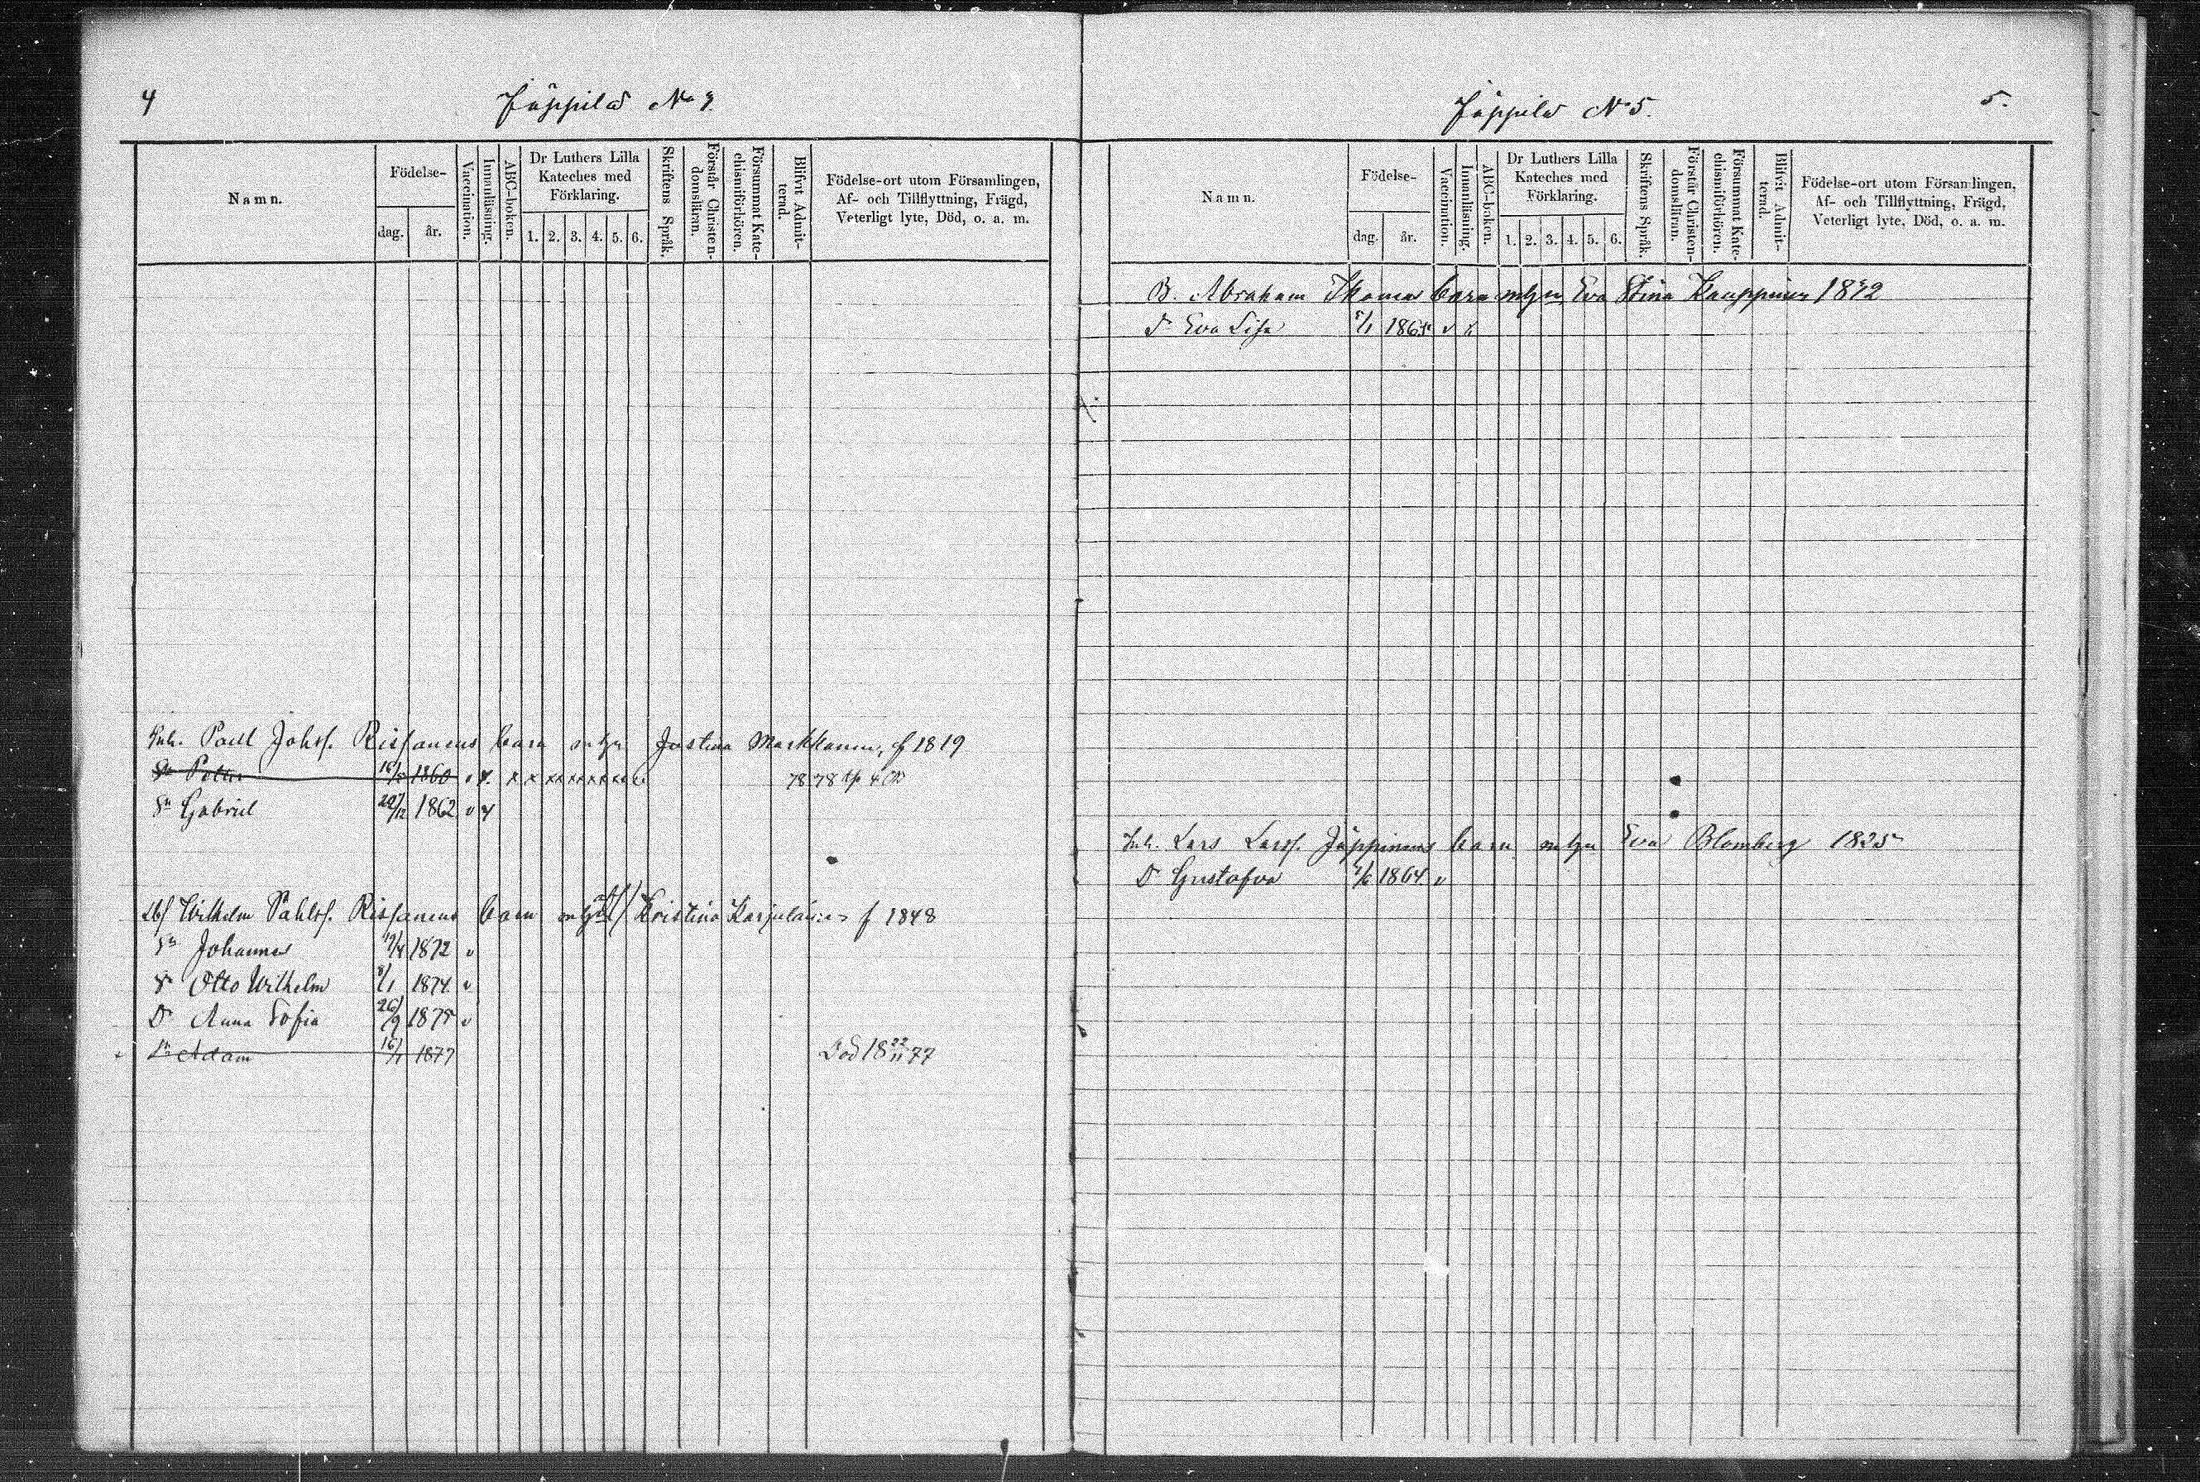 4
Jäppilä No 4.
Namn.
Födelse-
dag.
år.
Vaccination.
Innanläsning.
ABC-boken.
Dr Luthers Lilla
Kateches med
Förklaring.
1. 2. 3. 4. 5. 6.
Skriftens Språk.
Förstår Christen-
domsläran.
Försummat Kate-
chismiförhören.
Blifvit Admit-
terad.
Födelse-ort utom Församlingen,
Af- och Tillflyttning, Frägd,
Veterligt lyte, Död, o. a. m.
Inh. Paul Johss. Rissanens barn m hu Justina Markkanen, f 1819
Sn Petter 16/5 1860 v x x x x x x x x x x 1878
Sn Gabriel 1862 v x
Wilhelm Pahlss. Rissanens barn m Kristina Karjulainen f 1848
Sn Johannes 17/4 1872 v
Sn Otto Wilhelm 8/1 1874 v
Dr Anna Sofia 26/9 1875 v
Sn Adam 16/1 1877 Död 18 22/11 77
5.
Jäppilä No 5.
Namn.
Födelse-
dag.
år.
Vaccination.
Innanläsning.
ABC-boken.
Dr Luthers Lilla
Kateches med
Förklaring.
1. 2. 3. 4. 5. 6.
Skriftens Språk.
Förstår Christen-
domsläran.
Försummat Kate-
chismiförhören.
Blifvit Admit-
terad.
Födelse-ort utom Församlingen,
Af- och Tillflyttning, Frägd,
Veterligt lyte, Död, o. a. m.
B. Abraham Thomas barn m hu Eva Stina Kauppinen
d Eva Lisa 5/1 1864 v
Inh. Lars Larss. Jäppinens barn m hu Eva Blomberg 1825
Dr Gustafva 1864 v